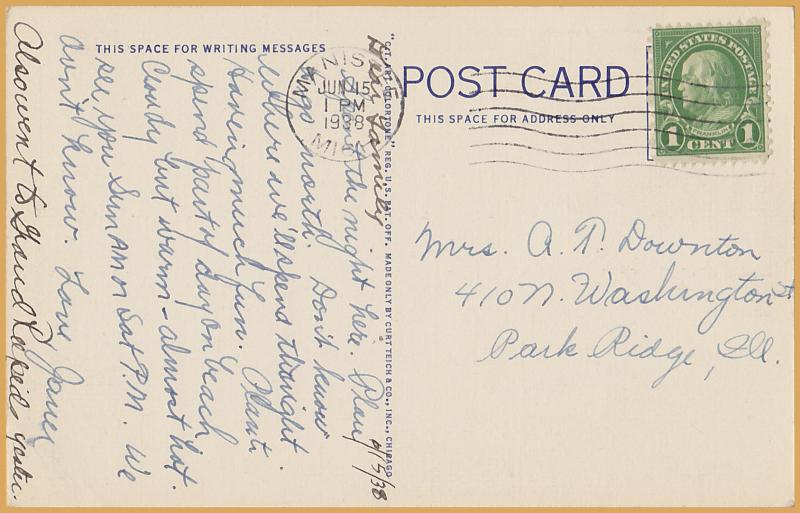 THIS SPACE FOR WRITING MESSAGES
Dear Family 6/15/38
the night here. Plan
to go north. Don't know
where we'll spend tonight.
Having much fun. Want
spend part of day on beach
Cloudy but warm - almost hot.
see you Sun AM or Sat P.M. We
don't know. Love Janet
Also went to Grand Rapids yester.
"C.T. ART-COLORTONE" REG. U.S. PAT. OFF. MADE ONLY BY CURT TEICH & CO., INC., CHICAGO
MANISTEE
JUN 15
1 PM
1938
MICH
POST CARD
THIS SPACE FOR ADDRESS ONLY
UNITED STATES POSTAGE
FRANKLIN
1 CENT 1
Mrs. A. T. Downton
410 N. Washington St
Park Ridge, Ill.